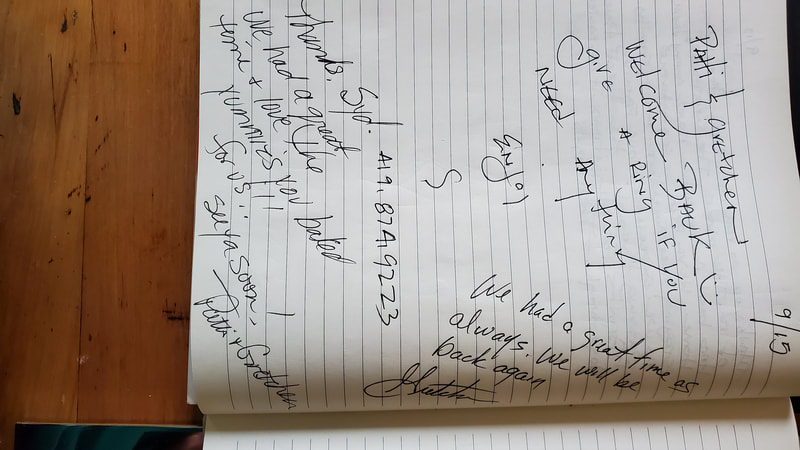 9/15
Patti & Gretchen
Welcome Back
give a ring if you
need anything
Enjoy!
S
419.8749223
We had a great time as
always. We will be
back again
Thanks, Syd.
We had a great
time & love the
yummies you baked
for us!!
See ya soon -
Patti + Gretchen